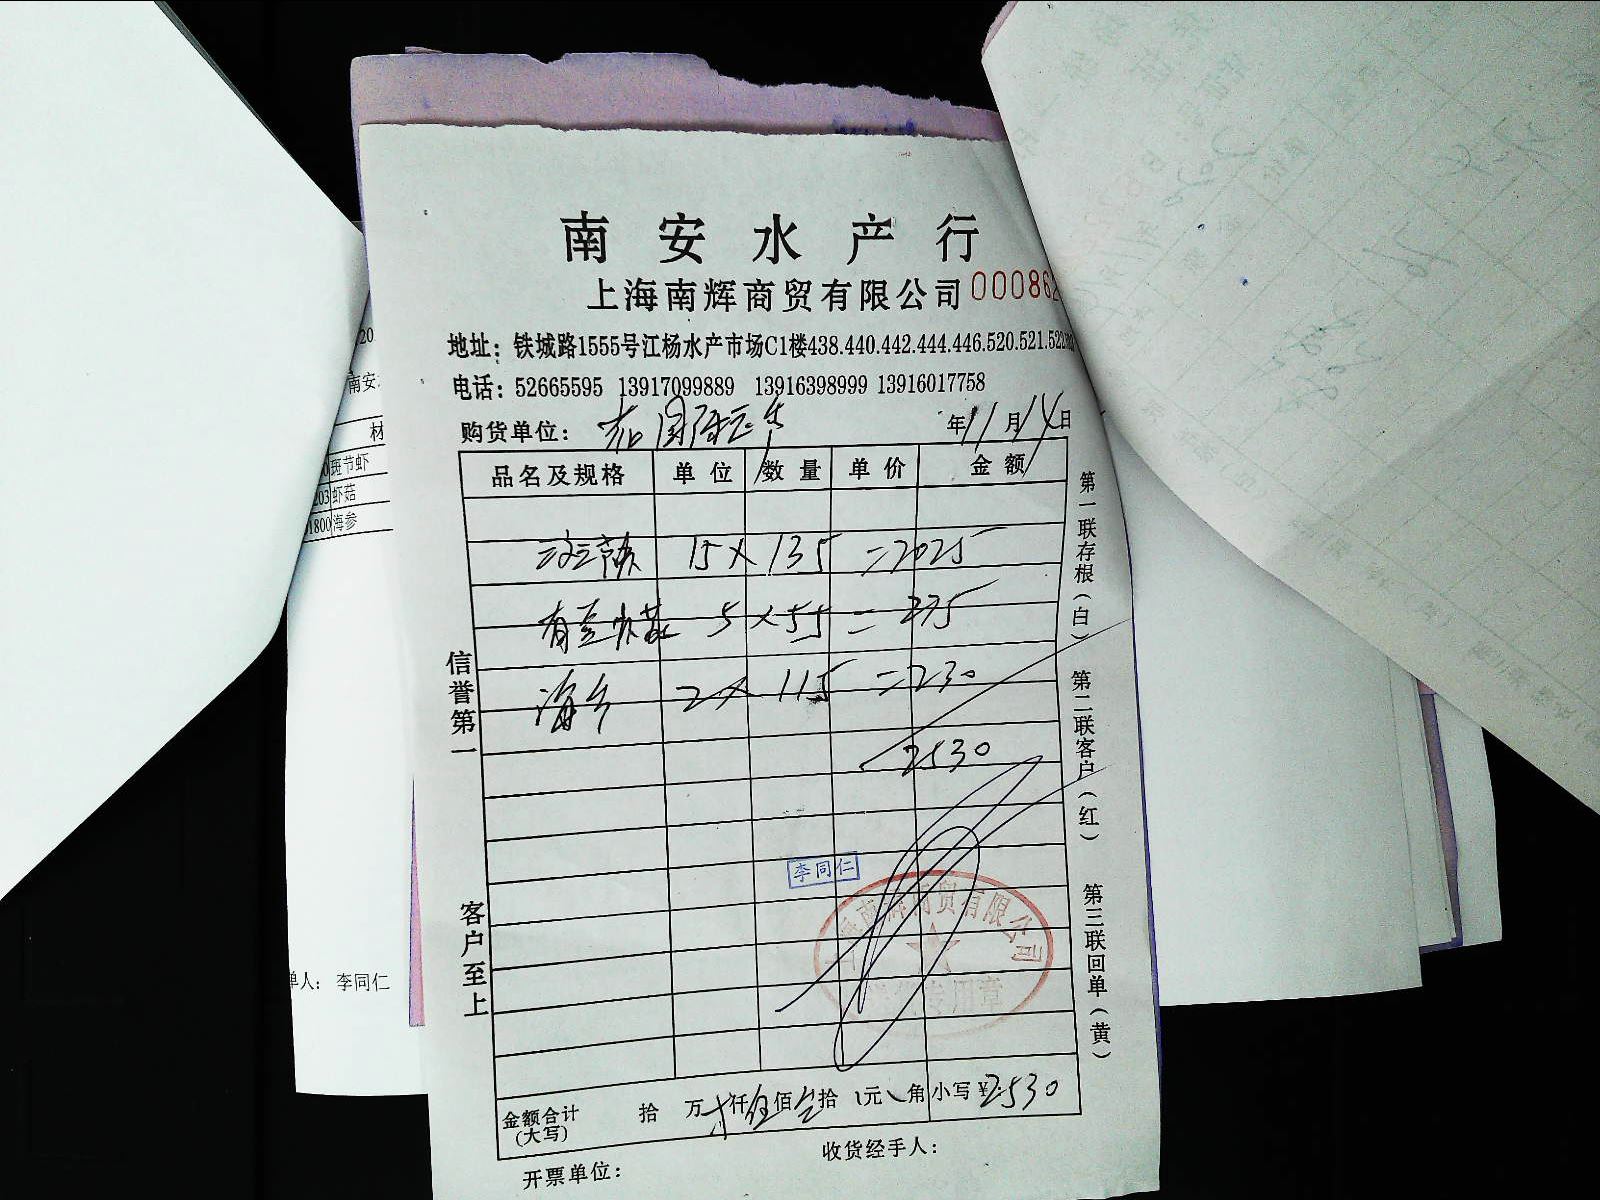 南安水产行
上海南辉商贸有限公司 00086
地址：铁城路1555号江杨水产市场C1楼438.440.442.444.446.520.521.522
电话：52665595 13917099889 13916398999 13916017758
购货单位：
年11月14日
品名及规格 单位 数量 单价 金额
15×135=2025
5×55=275
海参 2×115=230
2530
李同仁
南辉商贸有限公司
专用章
金额合计（大写） 拾 万 仟伍佰叁拾 元 角 小写￥2530
开票单位： 收货经手人：
信誉第一
客户至上
第一联存根（白）
第二联客户（红）
第三联回单（黄）
20
南安
材
斑节虾
203 虾菇
1800 海参
单人：李同仁